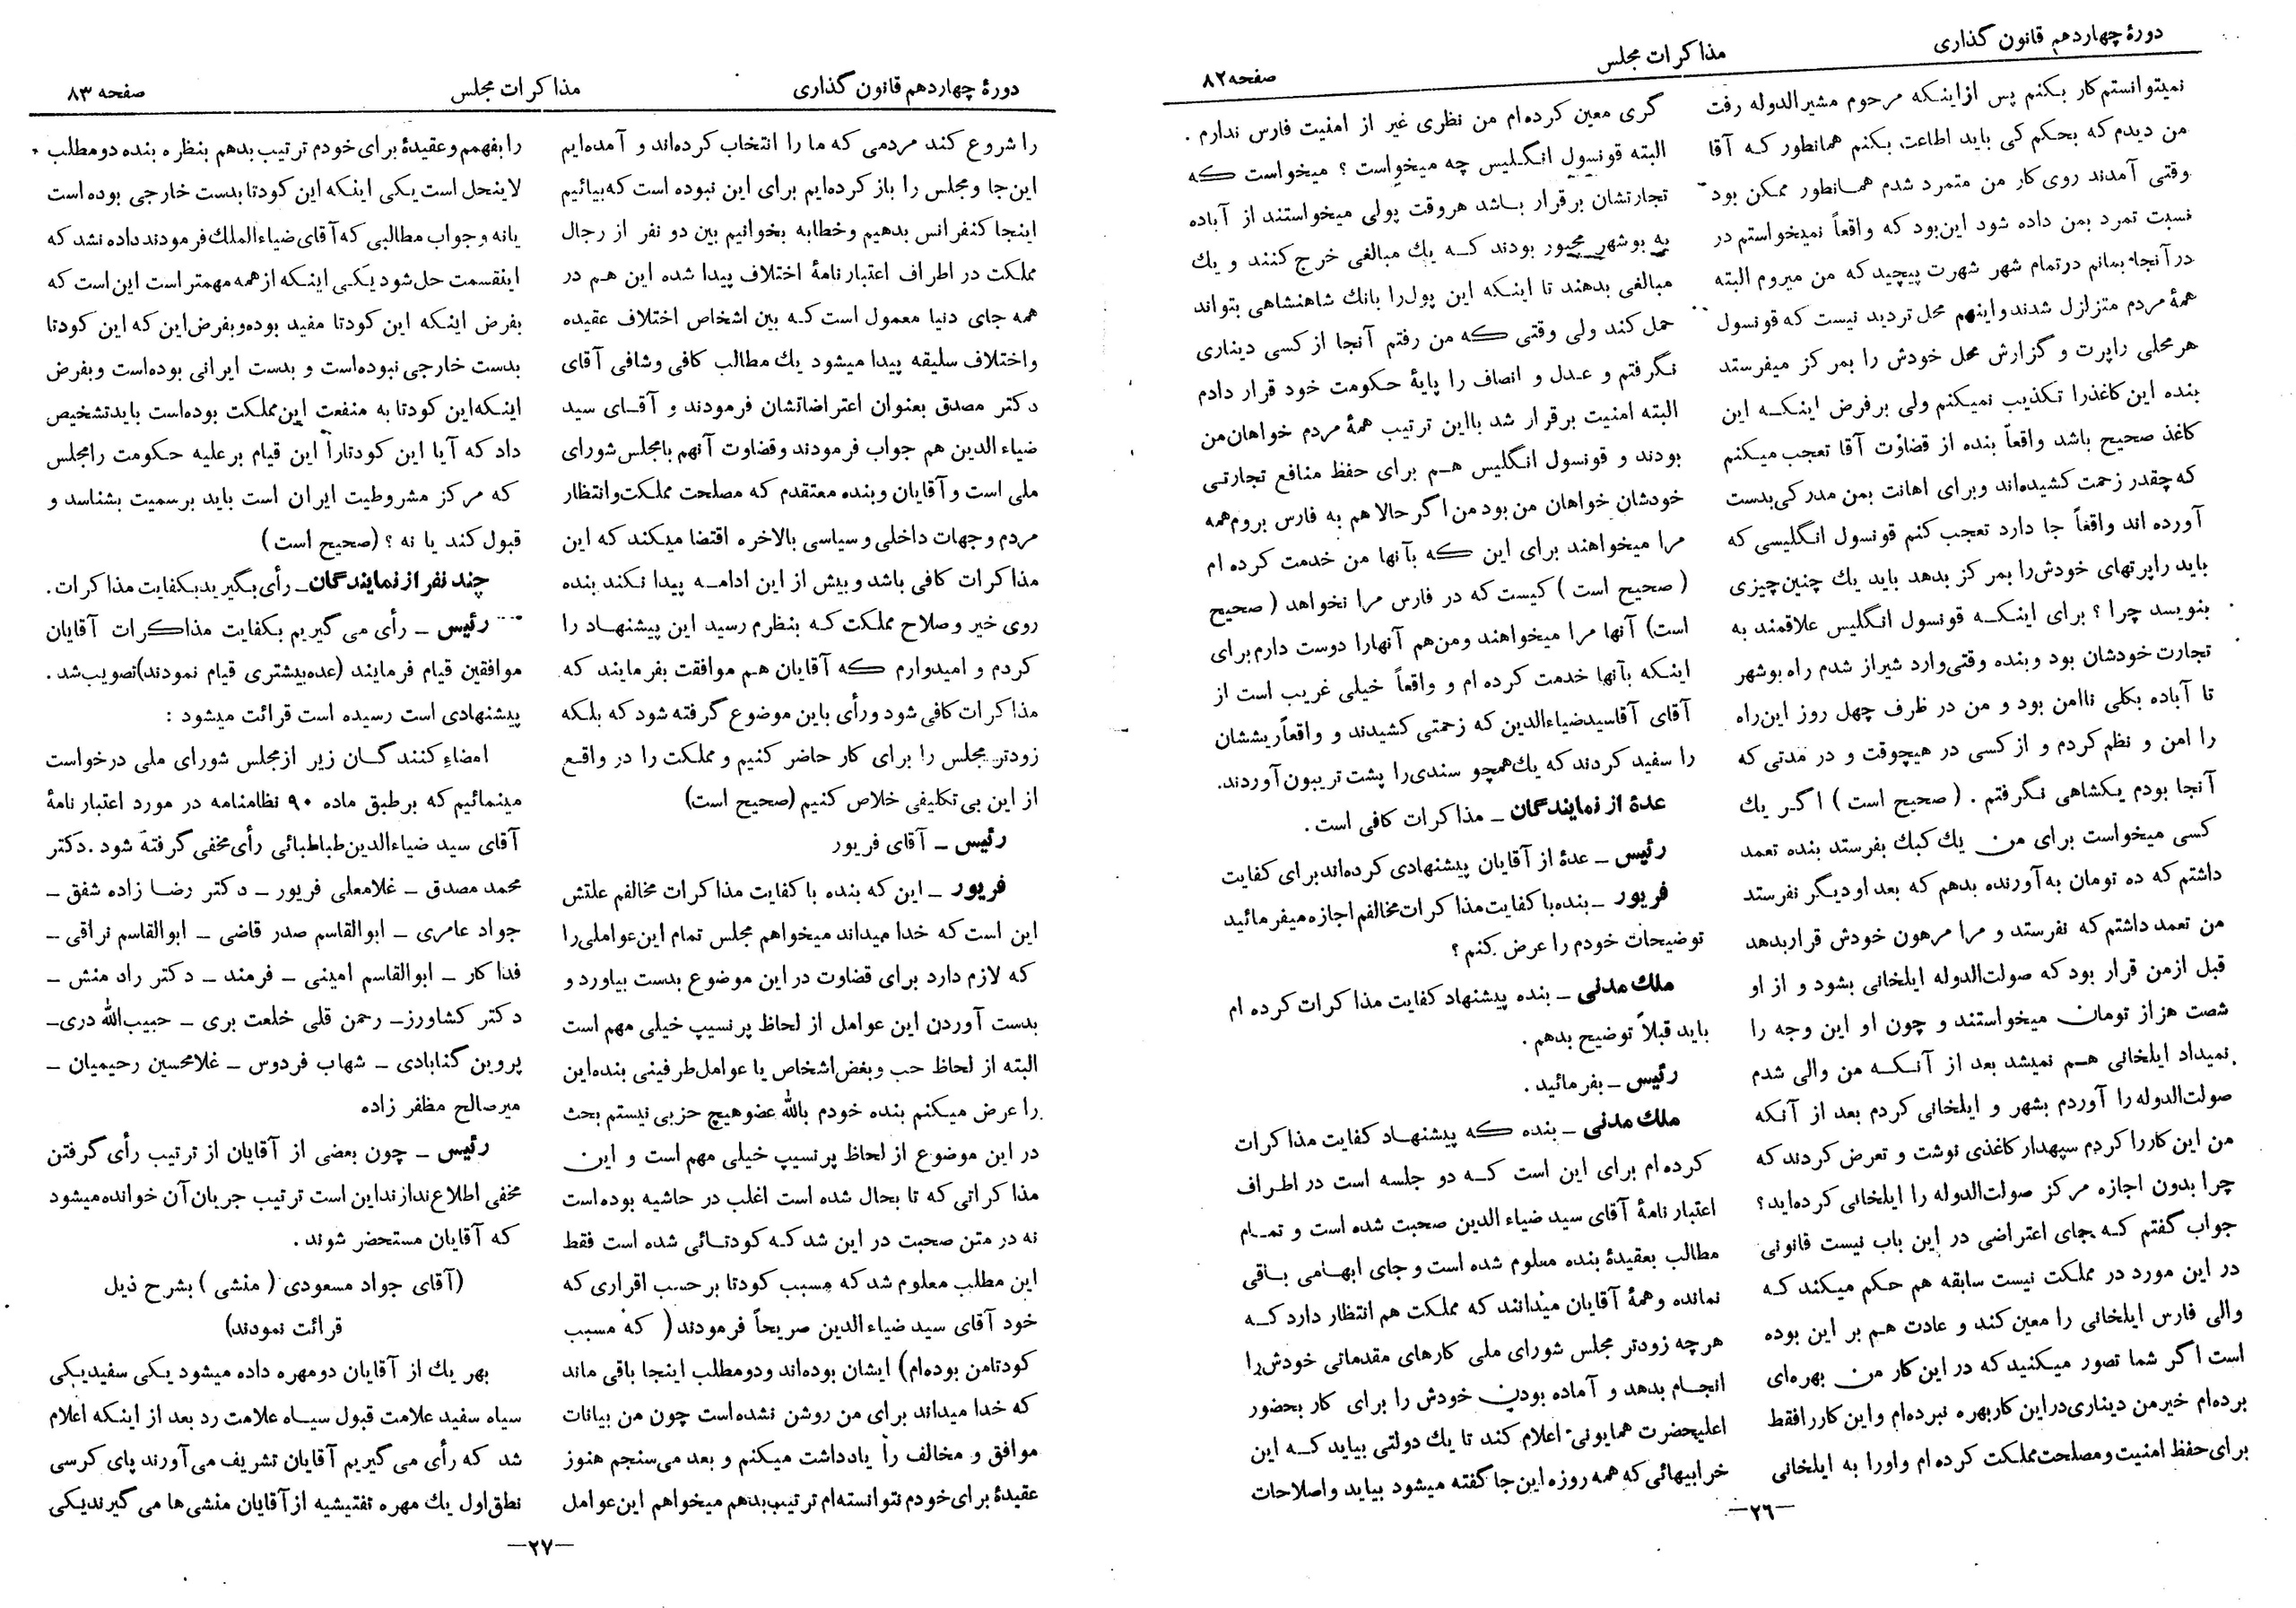 دورهٔ چهاردهم قانون گذاری
مذاکرات مجلس
صفحه ۸۲
نمیتوانستم کار بکنم پس از اینکه مرحوم مشیرالدوله رفت
من دیدم که بحکم کی باید اطاعت بکنم همانطور که آقا
وقتی آمدند روی کار من متمرد شدم همانطور ممکن بود
نسبت تمرد بمن داده شود این بود که واقعاً نمیخواستم در
در آنجا بمانم در تمام شهر شهرت پیچید که من میروم البته
همهٔ مردم متزلزل شدند و اینهم محل تردید نیست که قونسول
هر محلی راپرت و گزارش محل خودش را بمرکز میفرستد
بنده این کاغذ را تکذیب نمیکنم ولی بر فرض اینکه این
کاغذ صحیح باشد واقعاً بنده از قضاوت آقا تعجب میکنم
که چقدر زحمت کشیده‌اند و برای اهانت بمن مدرکی بدست
آورده اند واقعاً جا دارد تعجب کنم قونسول انگلیسی که
باید راپرتهای خودش را بمرکز بدهد باید یك چنین چیزی
بنویسد چرا ؟ برای اینکه قونسول انگلیس علاقمند به
تجارت خودشان بود و بنده وقتی وارد شیراز شدم راه بوشهر
تا آباده بکلی ناامن بود و من در ظرف چهل روز این راه
را امن و نظم کردم و از کسی در هیچوقت و در مدتی که
آنجا بودم یکشاهی نگرفتم . (صحیح است) اگر یك
کسی میخواست برای من یك کبك بفرستد بنده تعمد
داشتم که ده تومان به آورنده بدهم که بعد او دیگر نفرستد
من تعمد داشتم که نفرستد و مرا مرهون خودش قرار بدهد
قبل از من قرار بود که صولت‌الدوله ایلخانی بشود و از او
شصت هزار تومان میخواستند و چون او این وجه را
نمیداد ایلخانی هم نمیشد بعد از آنکه من والی شدم
صولت‌الدوله را آوردم بشهر و ایلخانی کردم بعد از آنکه
من این کار را کردم سپهدار کاغذی نوشت و تعرض کردند که
چرا بدون اجازه مرکز صولت‌الدوله را ایلخانی کرده‌اید؟
جواب گفتم که جای اعتراضی در این باب نیست قانونی
در این مورد در مملکت نیست سابقه هم حکم میکند که
والی فارس ایلخانی را معین کند و عادت هم بر این بوده
است اگر شما تصور میکنید که در این کار من بهره‌ای
برده‌ام خیر من دیناری در این کار بهره نبرده‌ام و این کار را فقط
برای حفظ امنیت و مصلحت مملکت کرده‌ام و او را به ایلخانی
گری معین کرده‌ام من نظری غیر از امنیت فارس ندارم .
البته قونسول انگلیس چه میخواست ؟ میخواست که
تجارتشان برقرار باشد هر وقت پولی میخواستند از آباده
به بوشهر مجبور بودند که یك مبالغی خرج کنند و یك
مبالغی بدهند تا اینکه این پول را بانك شاهنشاهی بتواند
حمل کند ولی وقتی که من رفتم آنجا از کسی دیناری
نگرفتم و عدل و انصاف را پایهٔ حکومت خود قرار دادم
البته امنیت برقرار شد با این ترتیب همهٔ مردم خواهان من
بودند و قونسول انگلیس هم برای حفظ منافع تجارتی
خودشان خواهان من بود من اگر حالا هم به فارس بروم همه
مرا میخواهند برای این که بآنها من خدمت کرده ام
(صحیح است) کیست که در فارس مرا نخواهد (صحیح
است) آنها مرا میخواهند و من هم آنها را دوست دارم برای
اینکه بآنها خدمت کرده ام و واقعاً خیلی غریب است از
آقای آقاسید ضیاءالدین که زحمتی کشیدند و واقعاً ریششان
را سفید کردند که یك همچو سندی را پشت تریبون آوردند.
عدهٔ از نمایندگان ـ مذاکرات کافی است .
رئیس ـ عدهٔ از آقایان پیشنهادی کرده‌اند برای کفایت
فریور ـ بنده با کفایت مذاکرات مخالفم اجازه میفرمائید
توضیحات خودم را عرض کنم ؟
ملك مدنی ـ بنده پیشنهاد کفایت مذاکرات کرده ام
باید قبلاً توضیح بدهم .
رئیس ـ بفرمائید .
ملك مدنی ـ بنده که پیشنهاد کفایت مذاکرات
کرده ام برای این است که دو جلسه است در اطراف
اعتبار نامهٔ آقای سید ضیاء الدین صحبت شده است و تمام
مطالب بعقیدهٔ بنده معلوم شده است و جای ابهامی باقی
نمانده و همهٔ آقایان میدانند که مملکت هم انتظار دارد که
هر چه زودتر مجلس شورای ملی کارهای مقدماتی خودش را
انجام بدهد و آماده بودن خودش را برای کار بحضور
اعلیحضرت همایونی اعلام کند تا یك دولتی بیاید که این
خرابیهائی که همه روزه این جا گفته میشود بیاید و اصلاحات
ـ۲۶ـ
دورهٔ چهاردهم قانون گذاری
مذاکرات مجلس
صفحه ۸۳
را شروع کند مردمی که ما را انتخاب کرده‌اند و آمده‌ایم
این جا و مجلس را باز کرده‌ایم برای این نبوده است که بیائیم
اینجا کنفرانس بدهیم و خطابه بخوانیم بین دو نفر از رجال
مملکت در اطراف اعتبار نامهٔ اختلاف پیدا شده این هم در
همه جای دنیا معمول است که بین اشخاص اختلاف عقیده
و اختلاف سلیقه پیدا میشود یك مطالب کافی و شافی آقای
دکتر مصدق بعنوان اعتراضاتشان فرمودند و آقای سید
ضیاء الدین هم جواب فرمودند و قضاوت آنهم با مجلس شورای
ملی است و آقایان و بنده معتقدم که مصلحت مملکت و انتظار
مردم و جهات داخلی و سیاسی بالاخره اقتضا میکند که این
مذاکرات کافی باشد و بیش از این ادامه پیدا نکند بنده
روی خیر و صلاح مملکت که بنظرم رسید این پیشنهاد را
کردم و امیدوارم که آقایان هم موافقت بفرمایند که
مذاکرات کافی شود و رأی باین موضوع گرفته شود که بلکه
زودتر مجلس را برای کار حاضر کنیم و مملکت را در واقع
از این بی تکلیفی خلاص کنیم (صحیح است)
رئیس ـ آقای فریور
فریور ـ این که بنده با کفایت مذاکرات مخالفم علتش
این است که خدا میداند میخواهم مجلس تمام این عواملی را
که لازم دارد برای قضاوت در این موضوع بدست بیاورد و
بدست آوردن این عوامل از لحاظ پرنسیپ خیلی مهم است
البته از لحاظ حب و بغض اشخاص یا عوامل طرفینی بنده این
را عرض میکنم بنده خودم بالله عضو هیچ حزبی نیستم بحث
در این موضوع از لحاظ پرنسیپ خیلی مهم است و این
مذاکراتی که تا بحال شده است اغلب در حاشیه بوده است
نه در متن صحبت در این شد که کودتائی شده است فقط
این مطلب معلوم شد که مسبب کودتا بر حسب اقراری که
خود آقای سید ضیاءالدین صریحاً فرمودند ( که مسبب
کودتا من بوده‌ام) ایشان بوده‌اند و دو مطلب اینجا باقی ماند
که خدا میداند برای من روشن نشده است چون من بیانات
موافق و مخالف را یادداشت میکنم و بعد می سنجم هنوز
عقیدهٔ برای خودم نتوانسته‌ام ترتیب بدهم میخواهم این عوامل
را بفهم و عقیدهٔ برای خودم ترتیب بدهم بنظره بنده دو مطلب
لاینحل است یکی اینکه این کودتا بدست خارجی بوده است
یا نه و جواب مطالبی که آقای ضیاءالملك فرمودند داده نشد که
اینقسمت حل شود یکی اینکه از همه مهمتر است این است که
بفرض اینکه این کودتا مفید بوده و بفرض این که این کودتا
بدست خارجی نبوده‌است و بدست ایرانی بوده‌است و بفرض
اینکه این کودتا به منفعت این مملکت بوده‌است باید تشخیص
داد که آیا این کودتا را این قیام بر علیه حکومت را مجلس
که مرکز مشروطیت ایران است باید برسمیت بشناسد و
قبول کند یا نه ؟ (صحیح است)
چند نفر از نمایندگان ـ رأی بگیرید بکفایت مذاکرات.
رئیس ـ رأی می گیریم بکفایت مذاکرات آقایان
موافقین قیام فرمایند (عده بیشتری قیام نمودند) تصویب شد.
پیشنهادی است رسیده است قرائت میشود :
امضاء کنندگان زیر از مجلس شورای ملی درخواست
مینمائیم که بر طبق ماده ۹۰ نظامنامه در مورد اعتبار نامهٔ
آقای سید ضیاءالدین طباطبائی رأی مخفی گرفته شود . دکتر
محمد مصدق ـ غلامعلی فریور ـ دکتر رضا زاده شفق ـ
جواد عامری ـ ابوالقاسم صدر قاضی ـ ابوالقاسم نراقی ـ
فداکار ـ ابوالقاسم امینی ـ فرمند ـ دکتر راد منش ـ
دکتر کشاورز ـ رحمن قلی خلعت بری ـ حبیب‌الله دری ـ
پروین گنابادی ـ شهاب فردوس ـ غلامحسین رحیمیان ـ
میر صالح مظفر زاده
رئیس ـ چون بعضی از آقایان از ترتیب رأی گرفتن
مخفی اطلاع ندارند این است ترتیب جریان آن خوانده میشود
که آقایان مستحضر شوند .
(آقای جواد مسعودی (منشی) بشرح ذیل
قرائت نمودند)
بهر یك از آقایان دو مهره داده میشود یکی سفید یکی
سیاه سفید علامت قبول سیاه علامت رد بعد از اینکه اعلام
شد که رأی می گیریم آقایان تشریف می آورند پای کرسی
نطق اول یك مهره تفتیشیه از آقایان منشی ها می گیرند یکی
ـ۲۷ـ